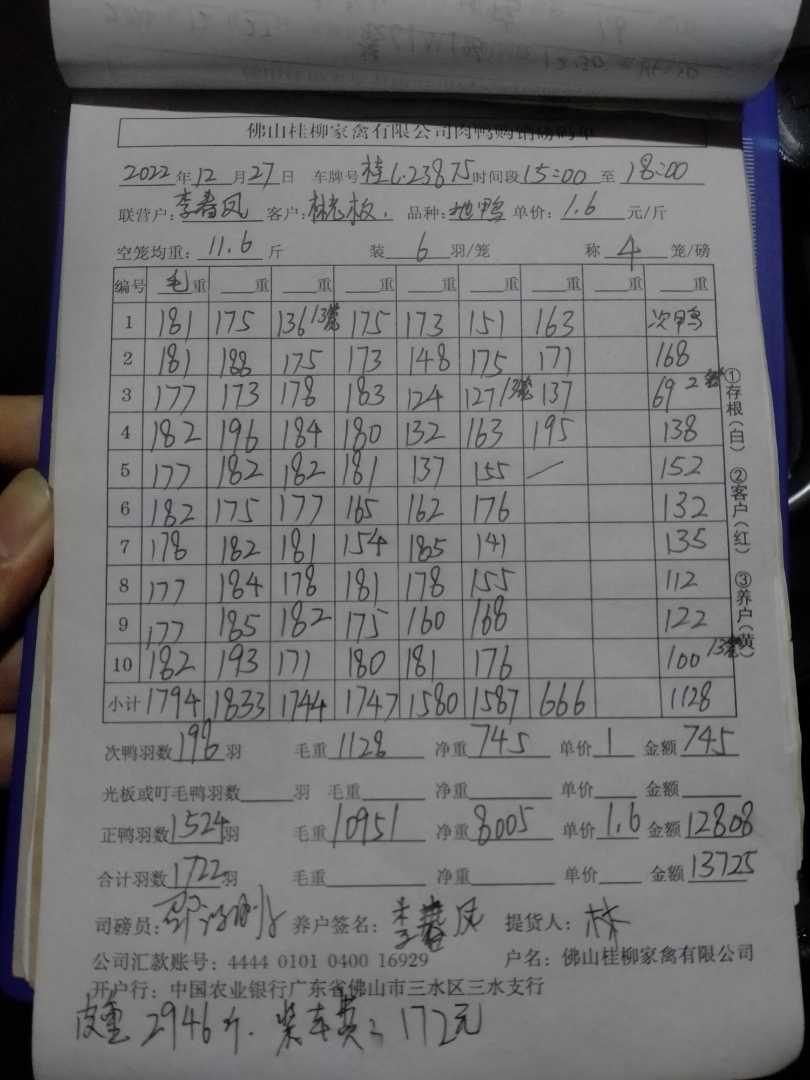 佛山桂柳家禽有限公司肉鸭购销磅码单
2022年12月27日 车牌号桂L23875时间段15:00至18:00
联营户:李春凤 客户:林老板. 品种:地鸭 单价:1.6元/斤
空笼均重:11.6斤 装6羽/笼 称4笼/磅
编号 毛重 重 重 重 重 重 重 重 重
1 181 175 136 13笼 175 173 151 163 次鸭
2 181 188 175 173 148 175 171 168
3 177 173 178 183 124 127 13笼 137 69 2笼
4 182 196 184 180 132 163 195 138
5 177 182 182 181 137 155 / 152
6 182 175 177 165 162 176 132
7 178 182 181 154 185 141 135
8 177 184 178 181 178 155 112
9 177 185 182 175 160 168 122
10 182 193 171 180 181 176 100 13笼
小计 1794 1833 1744 1747 1580 1587 666 1128
次鸭羽数198羽 毛重1128 净重745 单价1 金额745
光板或叮毛鸭羽数 羽 毛重 净重 单价 金额
正鸭羽数1524羽 毛重10951 净重8005 单价1.6 金额12808
合计羽数1722羽 毛重 净重 单价 金额13725
司磅员: 养户签名:李春凤 提货人:林
公司汇款账号:4444 0101 0400 16929 户名:佛山桂柳家禽有限公司
开户行:中国农业银行广东省佛山市三水区三水支行
皮重2946斤. 装车费:172元
①存根(白) ②客户(红) ③养户(黄)